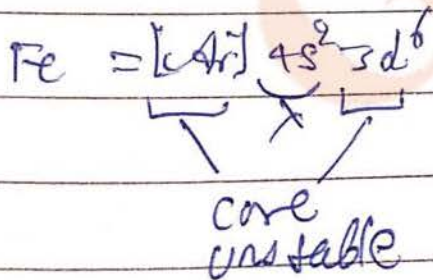 Fe = [Ar] 4s² 3d⁶
core
unstable